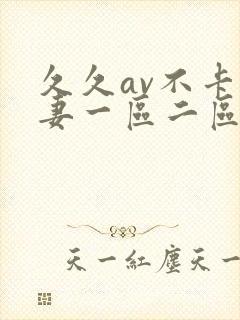 久久av不卡
妻一區二區
天一紅塵天一